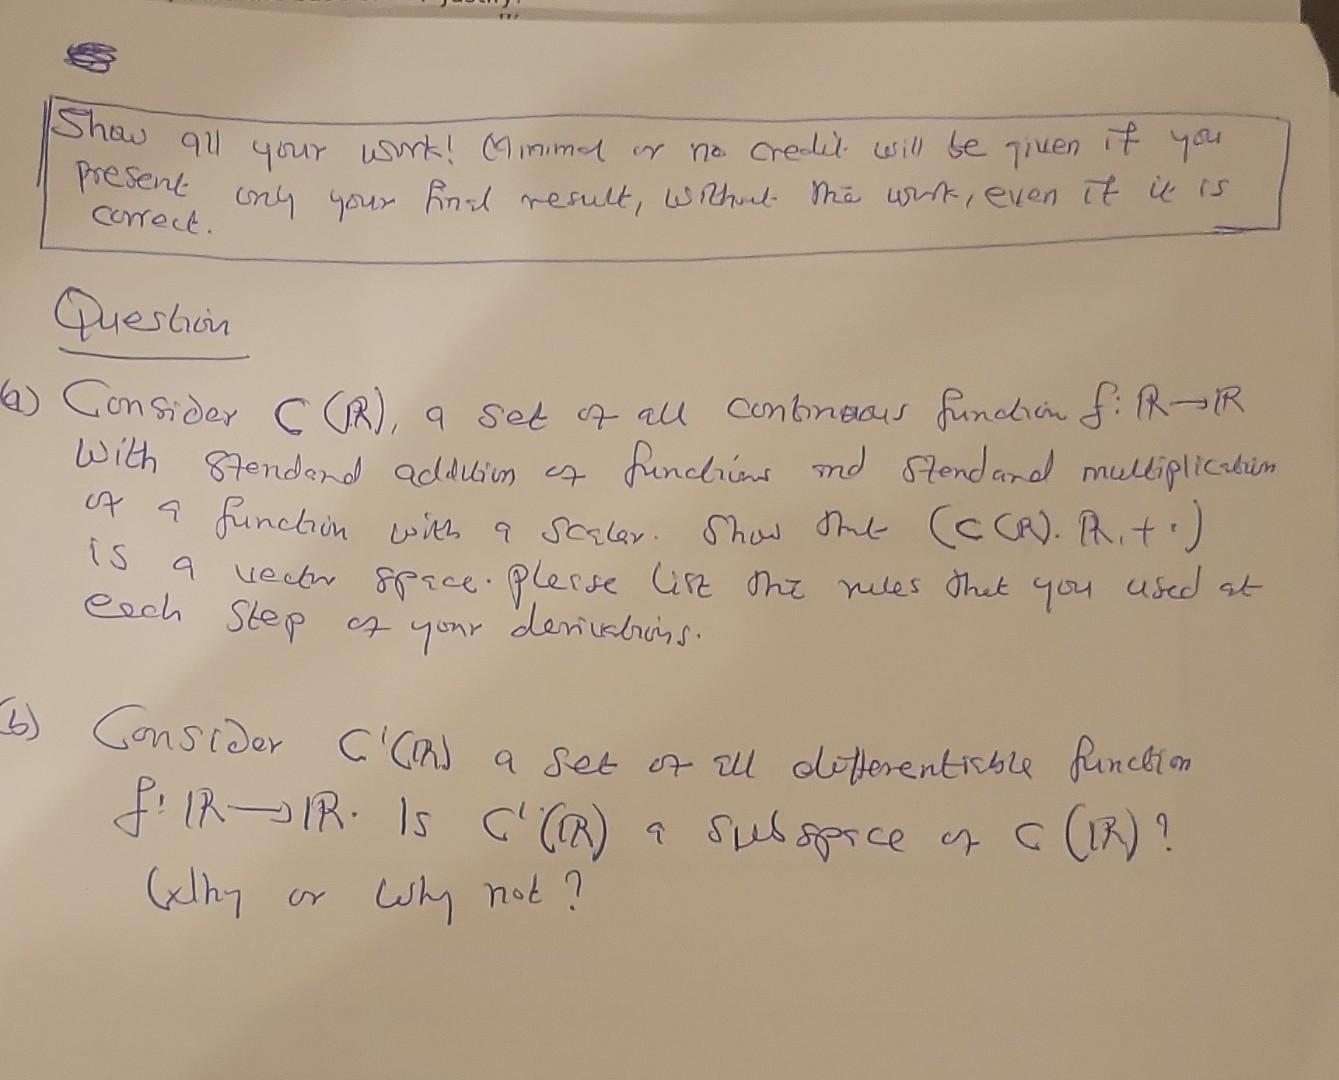 Show all your work! Minimal or no credit will be given if you
present only your final result, without the work, even if it is
correct.
Question
(a) Consider C (ℝ), a set of all continuous function f: ℝ→ℝ
With standard addition of functions and standard multiplication
of a function with a scalar. Show that (C(ℝ). ℝ, + ·)
is a vector space. please list the rules that you used at
each step of your derivations.
(b) Consider C'(ℝ) a set of all differentiable function
f: ℝ→ℝ. Is C'(ℝ) a subspace of C (ℝ)?
Why or why not?